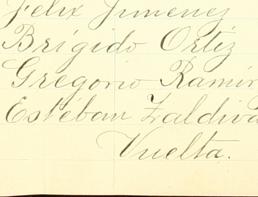 Felix Jimenez
Brígido Ortiz
Gregorio Ramir
Estéban Zaldiva
Vuelta.